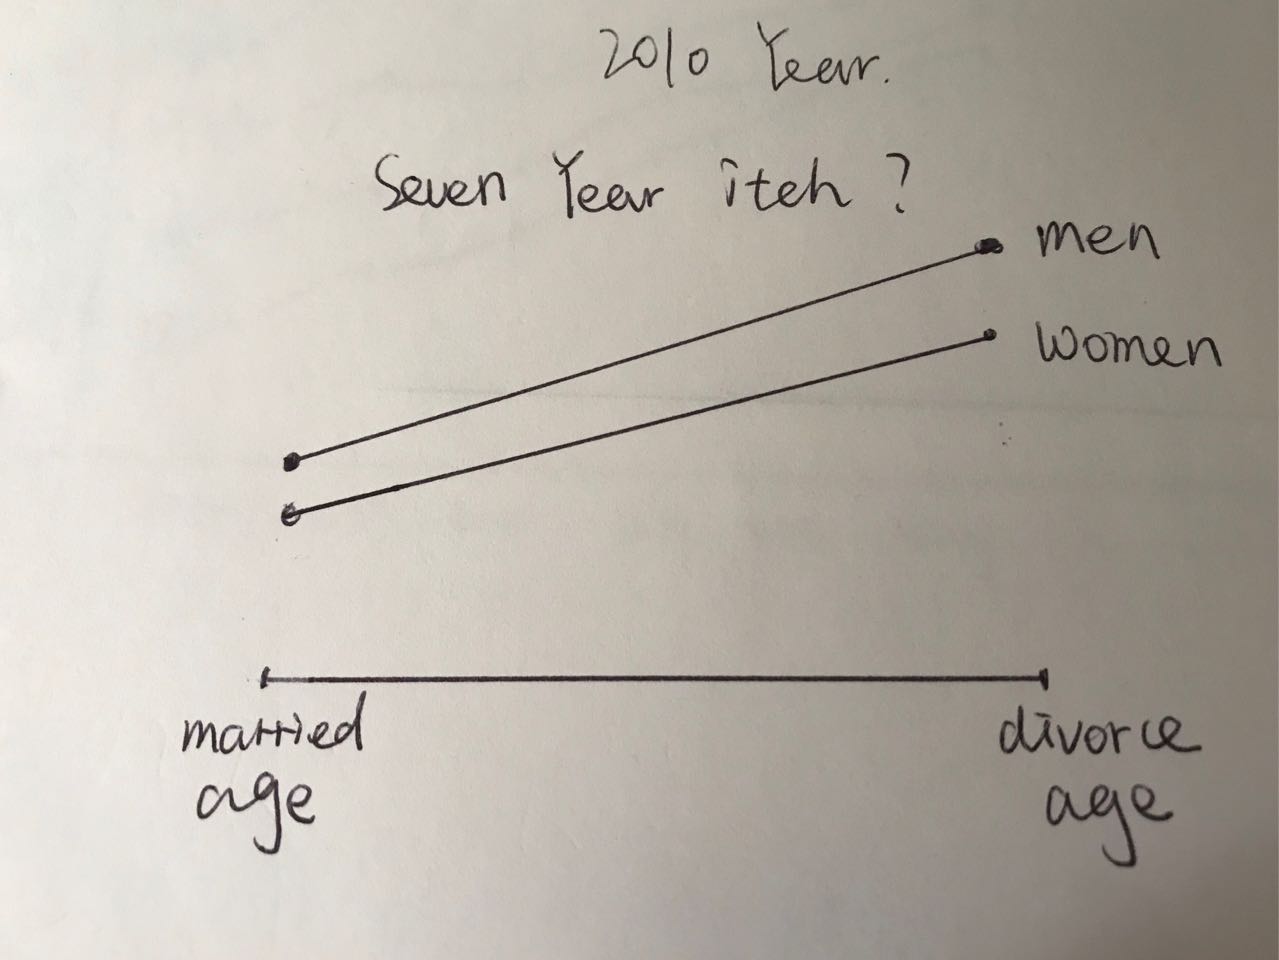 2010 Year.
Seven Year itch ?
men
women
married
age
divorce
age